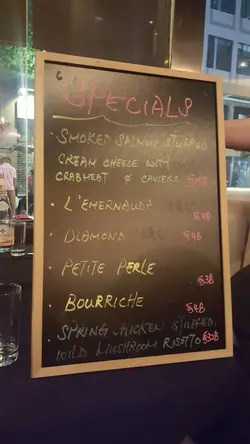 SPECIALS
· SMOKED SALMON STUFFED
CREAM CHEESE WITH
CRABMEAT & CAVIERS
· L'EMERNAUDA
$48
· DIAMOND $48
· PETITE PERLE
$38
· BOURRICHE
$48
· SPRING CHICKEN STUFFED
WILD MUSHROOM RISOTTO $328